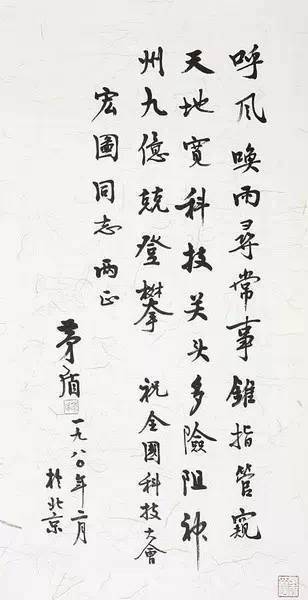 呼风喚雨尋常事錐指管窺
天地寬科技关头多險阻神
州九億兢登攀 祝全國科技大會
宏圖同志 两正
茅盾 一九八〇年二月
於北京